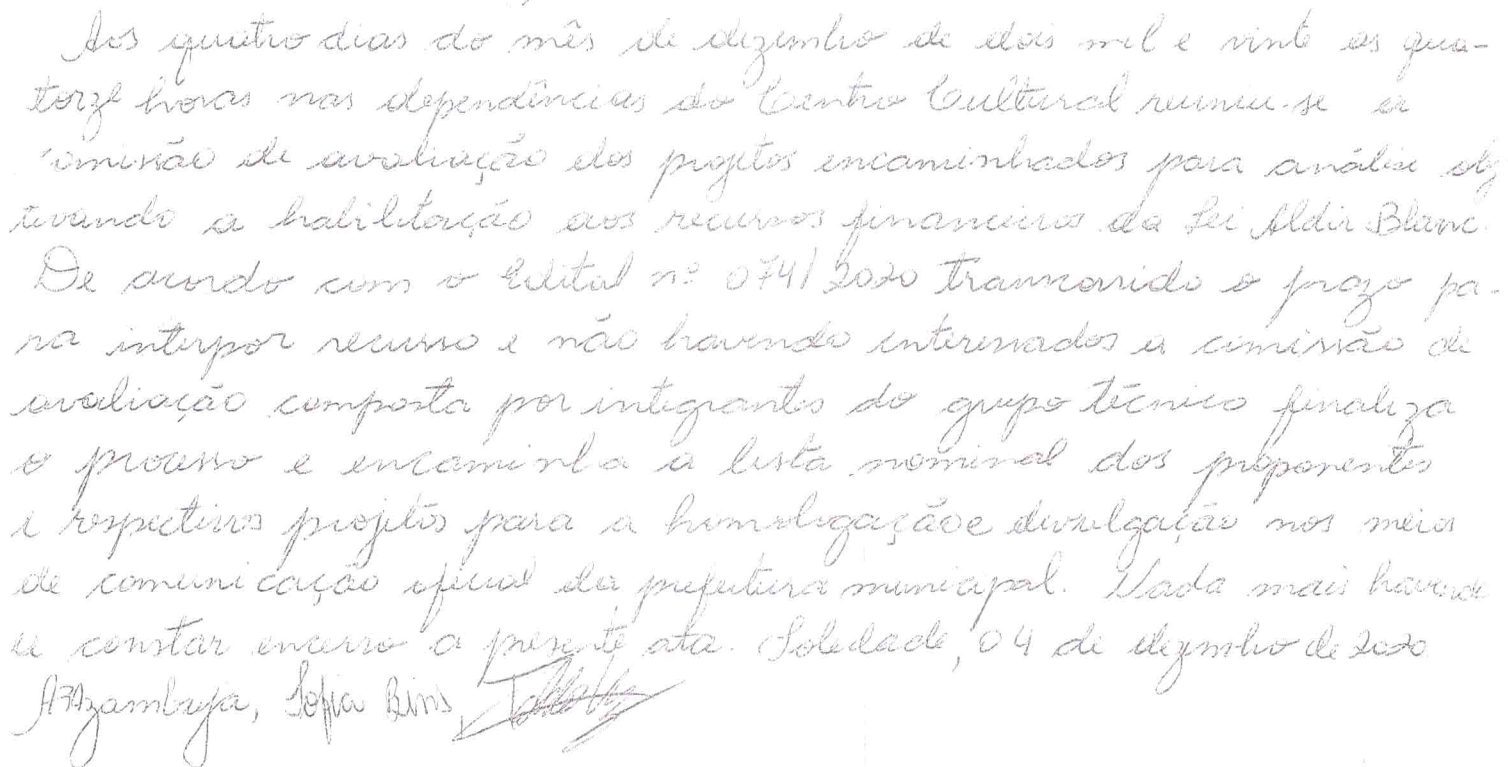 Aos quatro dias do mês de dezembro de dois mil e vinte as qua-
torze horas nas dependências do Centro Cultural reuniu-se a
comissão de avaliação dos projetos encaminhados para análise obj
tivando a habilitação aos recursos financeiros da Lei Aldir Blanc.
De acordo com o Edital nº 074/2020 transcorrido o prazo pa-
ra interpor recurso e não havendo interessados a comissão de
avaliação composta por integrantes do grupo técnico finaliza
o processo e encaminha a lista nominal dos proponentes
e respectivos projetos para a homologação e divulgação nos meios
de comunicação oficial da prefeitura municipal. Nada mais havendo
a constar encerro a presente ata. Soledade, 04 de dezembro de 2020
Azambuja, Sofia Bins,